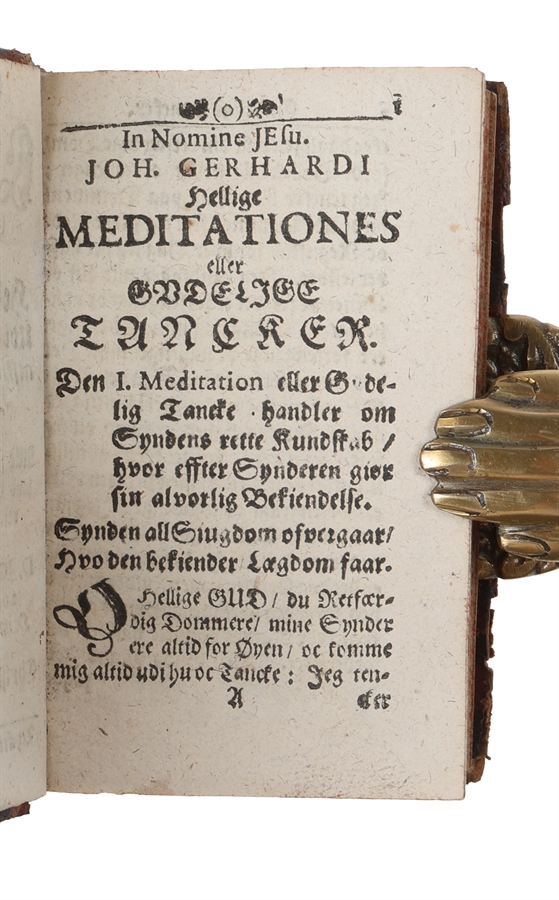 (0) 1
In Nomine JEsu.
JOH. GERHARDI
Hellige
MEDITATIONES
eller
GVDELIGE
TANCKER.
Den I. Meditation eller Gude-
lig Tancke handler om
Syndens rette Kundskab /
hvor effter Synderen giør
sin alvorlig Bekiendelse.
Synden all Siugdom ofvergaar/
Hvo den bekiender Lægdom faar.
O Hellige GUD / du Retfær-
dig Dommere / mine Synder
ere altid for Øyen / oc komme
mig altid udi hu oc Tancke : Jeg ten-
A cker